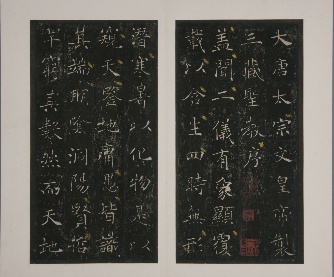 大唐太宗文皇帝製
三藏聖教序
盖聞二儀有象顯覆
載以含生四時無形
潛寒暑以化物是以
窺天鑒地庸愚皆識
其端明陰洞陽賢哲
罕窮其數然而天地